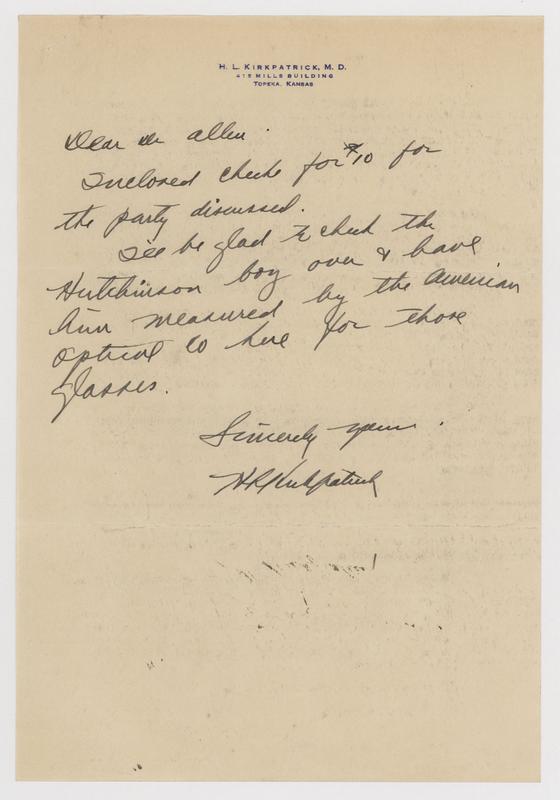 H. L. KIRKPATRICK, M. D.
415 MILLS BUILDING
TOPEKA, KANSAS
Dear Dr Allen.
Inclosed check for $10 for
the party discussed.
I'll be glad to check the
Hutchinson boy over & have
him measured by the American
Optical Co here for those
glasses.
Sincerely yours.
HL Kirkpatrick